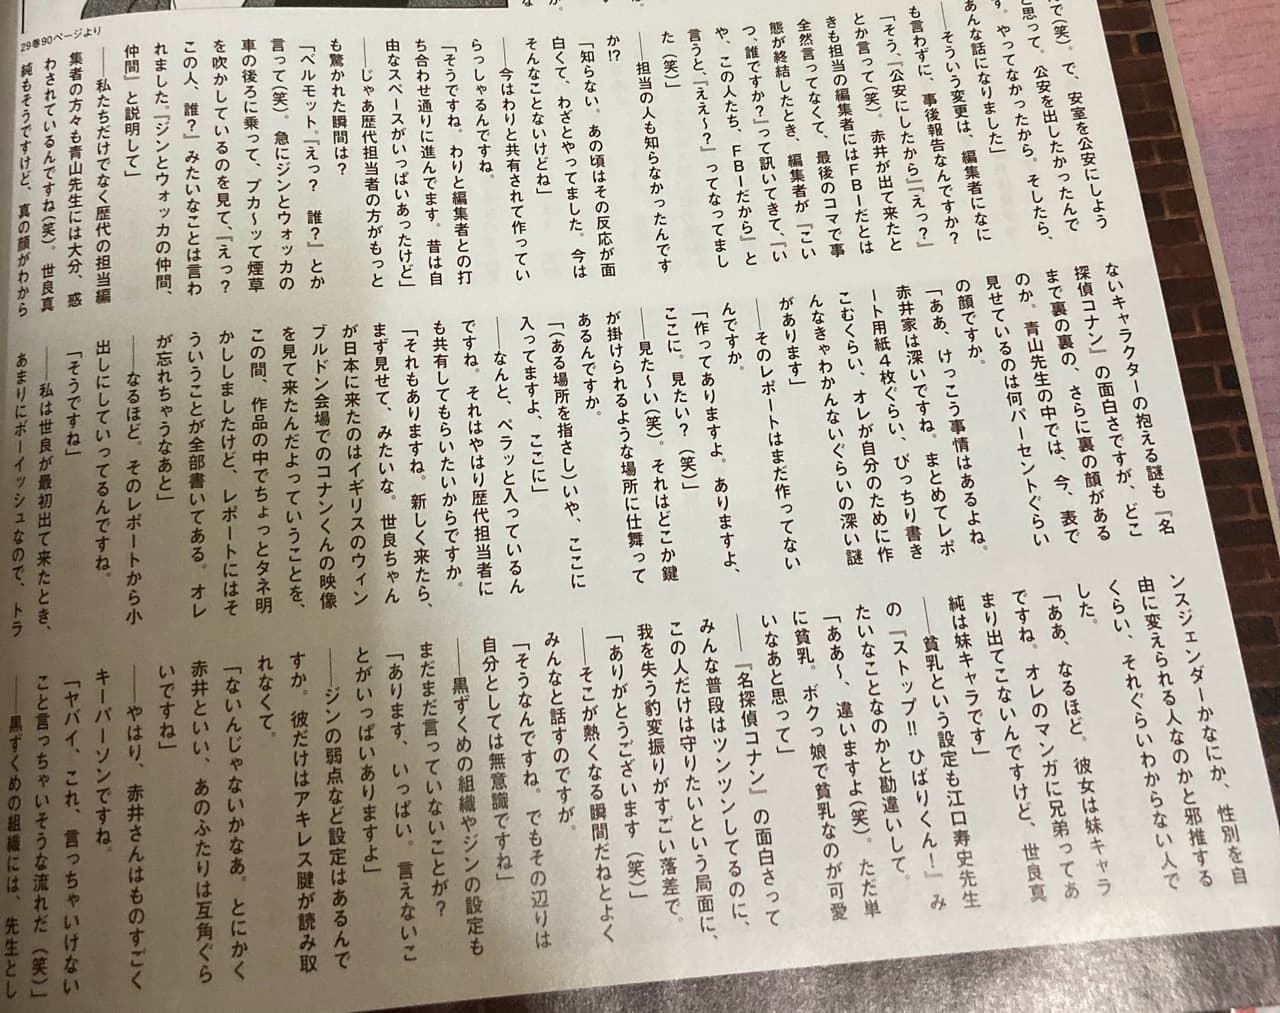 んで（笑）。で、安室を公安にしよう
と思って、公安を出したかったんで
す。やってなかったから。そしたら、
あんな話になりました」
――そういう変更は、編集者になに
も言わずに、事後報告なんですか？
「そう、『公安にしたから』『えっ？』
とか言って（笑）。赤井が出て来たと
きも担当の編集者にはFBIだとは
全然言ってなくて、最後のコマで事
態が終結したとき、編集者が『こい
つ、誰ですか？』って訊いてきて、『い
や、この人たち、FBIだから』と
言うと、『ええ～？』ってなってまし
た（笑）」
――担当の人も知らなかったんです
か!?
「知らない。あの頃はその反応が面
白くて、わざとやってました。今は
そんなことないけどね」
――今はわりと共有されて作ってい
らっしゃるんですね。
「そうですね。わりと編集者との打
ち合わせ通りに進んでます。昔は自
由なスペースがいっぱいあったけど」
――じゃあ歴代担当者の方がもっと
も驚かれた瞬間は？
「ベルモット。『えっ？　誰？』とか
言って（笑）。急にジンとウォッカの
車の後ろに乗って、プカ～ッて煙草
を吹かしているのを見て、『えっ？
この人、誰？』みたいなことは言わ
れました。『ジンとウォッカの仲間、
仲間』と説明して」
――私たちだけでなく歴代の担当編
集者の方々も青山先生には大分、惑
わされているんですね（笑）。世良真
純もそうですけど、真の顔がわから
29巻90ページより
ないキャラクターの抱える謎も『名
探偵コナン』の面白さですが、どこ
まで裏の裏の、さらに裏の顔がある
のか。青山先生の中では、今、表で
見せているのは何パーセントぐらい
の顔ですか。
「ああ、けっこう事情はあるよね。
赤井家は深いですね。まとめてレポ
ート用紙4枚ぐらい、びっちり書き
こむくらい、オレが自分のために作
んなきゃわかんないぐらいの深い謎
があります」
――そのレポートはまだ作ってない
んですか。
「作ってありますよ。ありますよ、
ここに。見たい？（笑）」
――見た～い（笑）。それはどこか鍵
が掛けられるような場所に仕舞って
あるんですか。
「（ある場所を指さし）いや、ここに
入ってますよ、ここに」
――なんと、ペラッと入っているん
ですね。それはやはり歴代担当者に
も共有してもらいたいからですか。
「それもありますね。新しく来たら、
まず見せて、みたいな。世良ちゃん
が日本に来たのはイギリスのウィン
ブルドン会場でのコナンくんの映像
を見て来たんだよっていうことを、
この間、作品の中でちょっとタネ明
かししましたけど、レポートにはそ
ういうことが全部書いてある。オレ
が忘れちゃうなあと」
――なるほど。そのレポートから小
出しにしていってるんですね。
「そうですね」
――私は世良が最初出て来たとき、
あまりにボーイッシュなので、トラ
ンスジェンダーかなにか、性別を自
由に変えられる人なのかと邪推する
くらい、それぐらいわからない人で
した。
「ああ、なるほど。彼女は妹キャラ
ですね。オレのマンガに兄弟ってあ
まり出てこないんですけど、世良真
純は妹キャラです」
――貧乳という設定も江口寿史先生
の『ストップ!!　ひばりくん！』み
たいなことなのかと勘違いして。
「ああ～、違いますよ（笑）。ただ単
に貧乳。ボクっ娘で貧乳なのが可愛
いなあと思って」
――『名探偵コナン』の面白さって
みんな普段はツンツンしてるのに、
この人だけは守りたいという局面に、
我を失う豹変振りがすごい落差で。
「ありがとうございます（笑）」
――そこが熱くなる瞬間だねとよく
みんなと話すのですが。
「そうなんですね。でもその辺りは
自分としては無意識ですね」
――黒ずくめの組織やジンの設定も
まだまだ言っていないことが？
「あります、いっぱい。言えないこ
とがいっぱいありますよ」
――ジンの弱点など設定はあるんで
すか。彼だけはアキレス腱が読み取
れなくて。
「ないんじゃないかなあ。とにかく
赤井といい、あのふたりは互角ぐら
いですね」
――やはり、赤井さんはものすごく
キーパーソンですね。
「ヤバイ、これ、言っちゃいけない
こと言っちゃいそうな流れだ（笑）」
――黒ずくめの組織には、先生とし